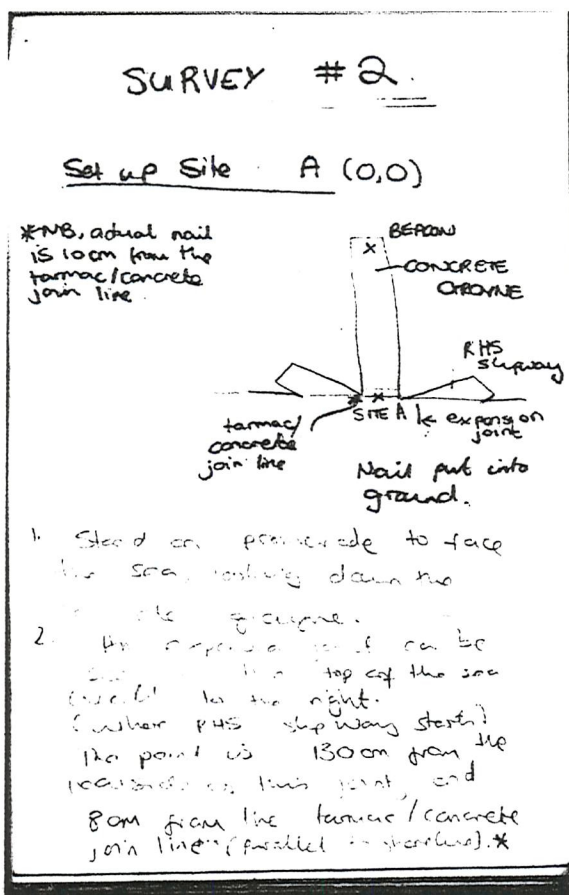 SURVEY #2.
Set up Site A (0,0)
*NB, actual nail
is 10cm from the
tarmac/concrete
join line.
BEACON
CONCRETE
GROYNE
RHS
slipway
SITE A
expansion
joint
tarmac/
concrete
join line
Nail put into
ground.
1. Stand on promenade to face
the sea, looking down the
groyne.
2. can be
top of the sea
to the right.
(where RHS slipway starts)
The point is 130cm from the
this joint, and
80m from line tarmac/concrete
join line (parallel).*